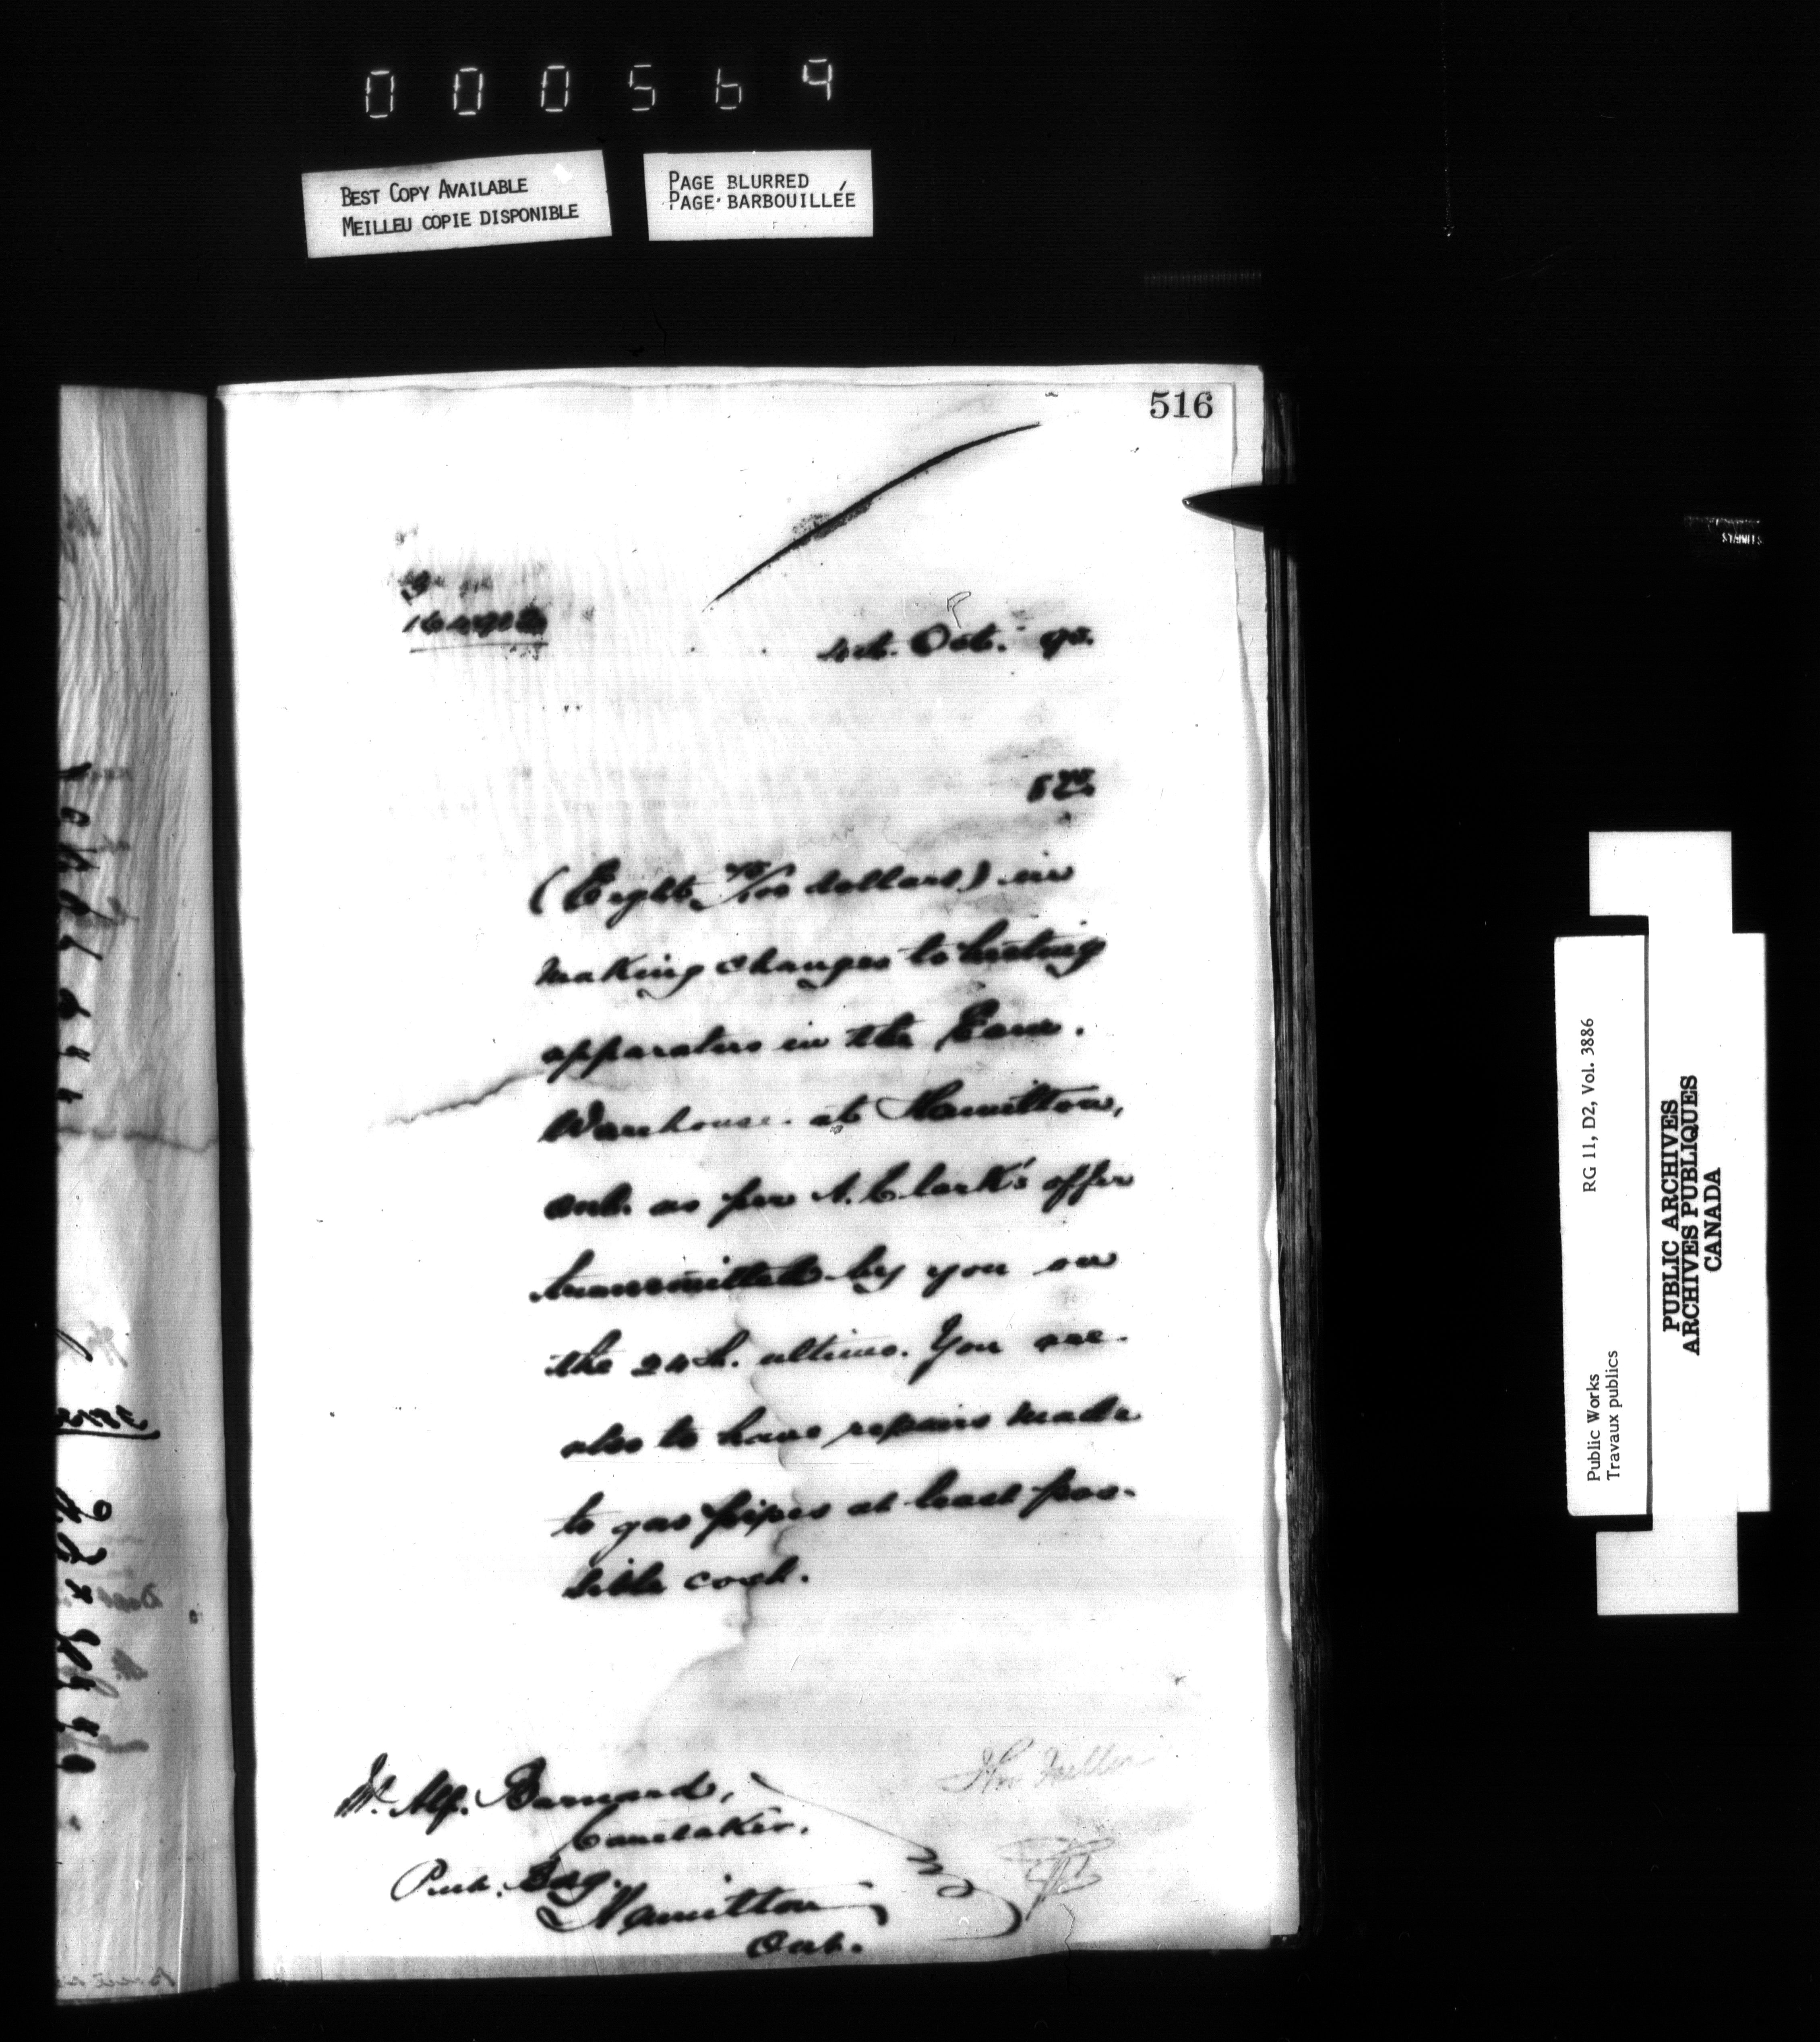 000569
BEST COPY AVAILABLE
MEILLEU COPIE DISPONIBLE
PAGE BLURRED
PAGE BARBOUILLÉE
516
4th. Oct. 90.
(Eight /100 dollars) in
making changes to heating
apparatus in the Exam.
Warehouse at Hamilton,
Ont. as per A. Clark's offer
transmitted by you on
the 24th. ultimo. You are
also to have repairs made
to gas pipes at least pos-
sible cost.
Mr. Alf. Barnard,
Caretaker,
Pub. Bdg.
Hamilton
Ont.
Public Works
Travaux publics
RG 11, D2, Vol. 3886
PUBLIC ARCHIVES
ARCHIVES PUBLIQUES
CANADA